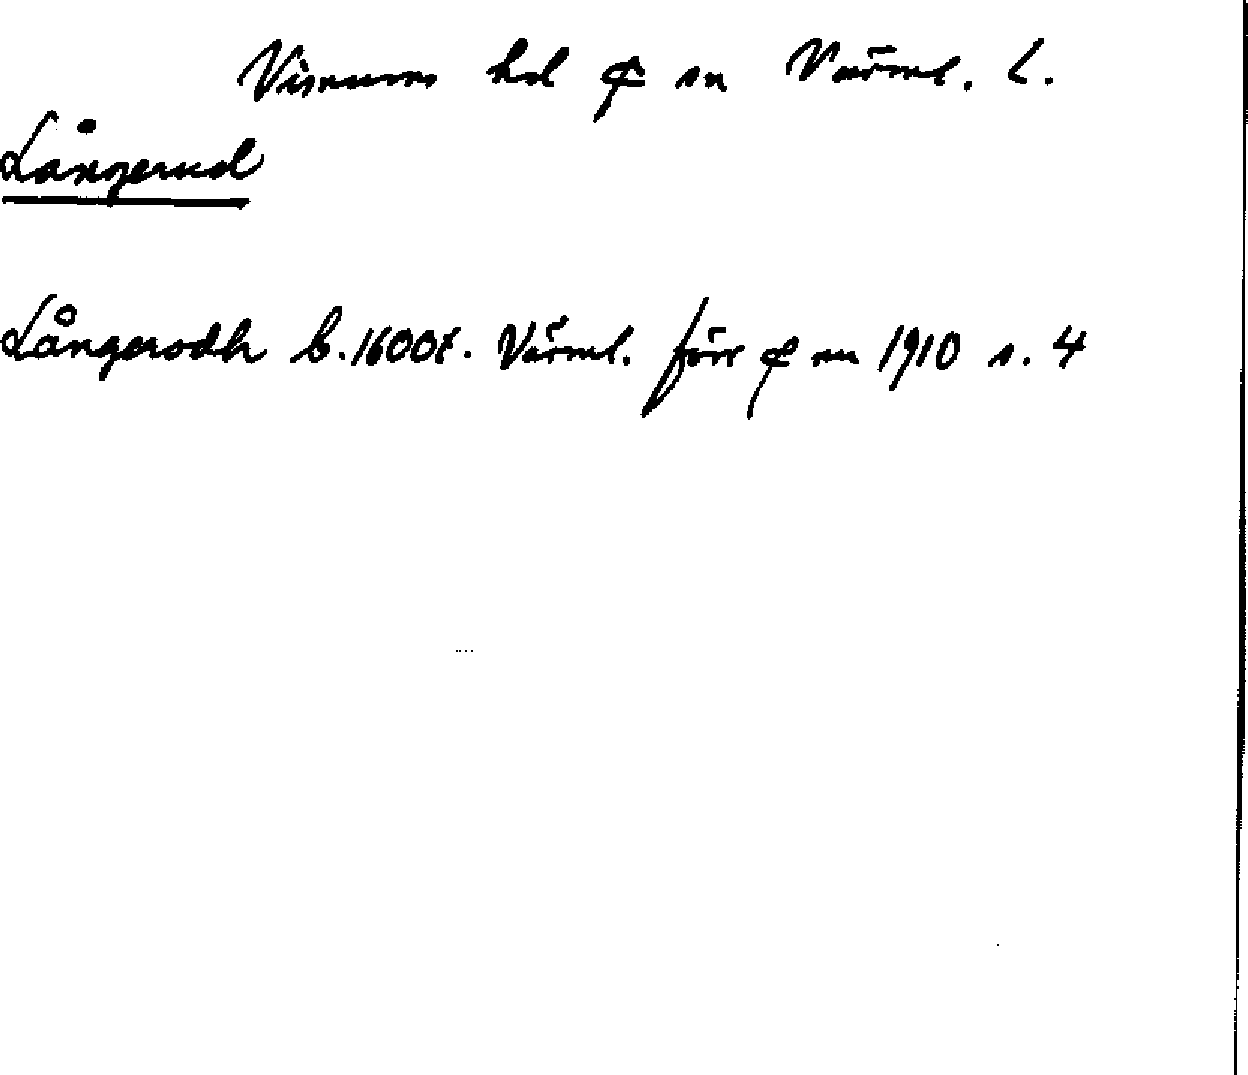 Visnums hd ₵ sn Värml. L.
Långerud
Långerodh b. 1600t. Värml. förr ₵ nu 1910 s. 4